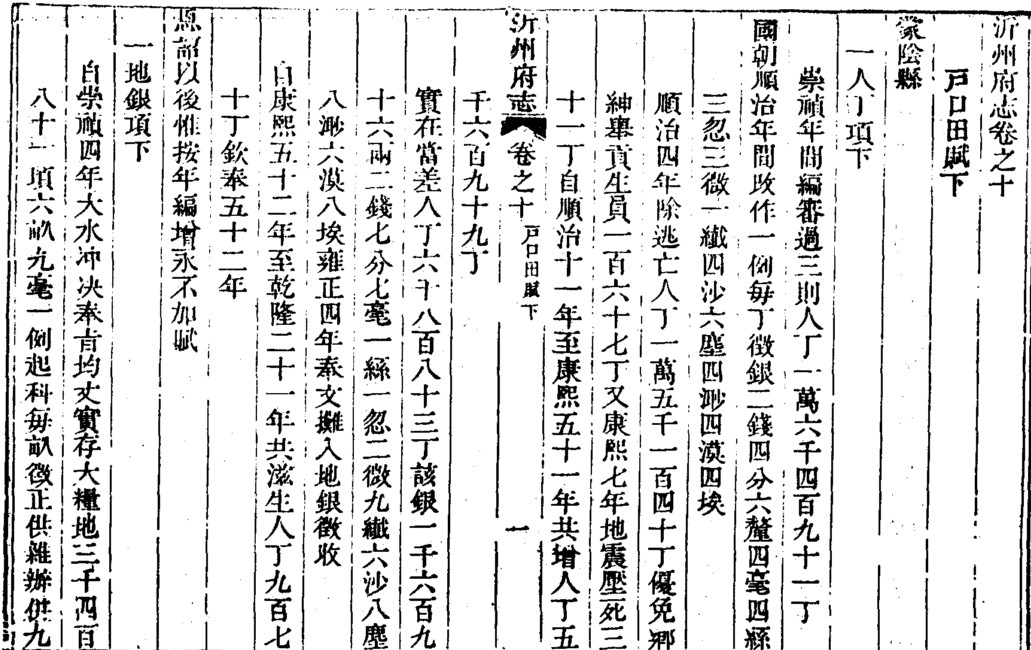 沂州府志卷之十
戸口田賦下
蒙陰縣
一人丁項下
崇禎年間編審過三則人丁一萬六千四百九十一丁
國朝順治年間改作一例毎丁徴銀二錢四分六釐四毫四絲
三忽三微一纖四沙六塵四渺四漠四埃
順治四年除逃亡人丁一萬五千一百四十丁優免鄉
紳舉貢生員一百六十七丁又康熙七年地震壓死三
十一丁自順治十一年至康熙五十一年共增人丁五
沂州府志 卷之十 戸口田賦下 一
千六百九十九丁
實在當差人丁六千八百八十三丁該銀一千六百九
十六兩二錢七分七毫一絲一忽二微九纖六沙八塵
八渺六漠八埃雍正四年奉文攤入地銀徴收
自康熙五十二年至乾隆二十一年共滋生人丁九百七
十丁欽奉五十二年
恩詔以後惟按年編增永不加賦
一地銀項下
自崇禎四年大水冲决奉旨均丈實存大糧地三千四百
八十一頃六畝九毫一例起科毎畝徴正供雜辦供九